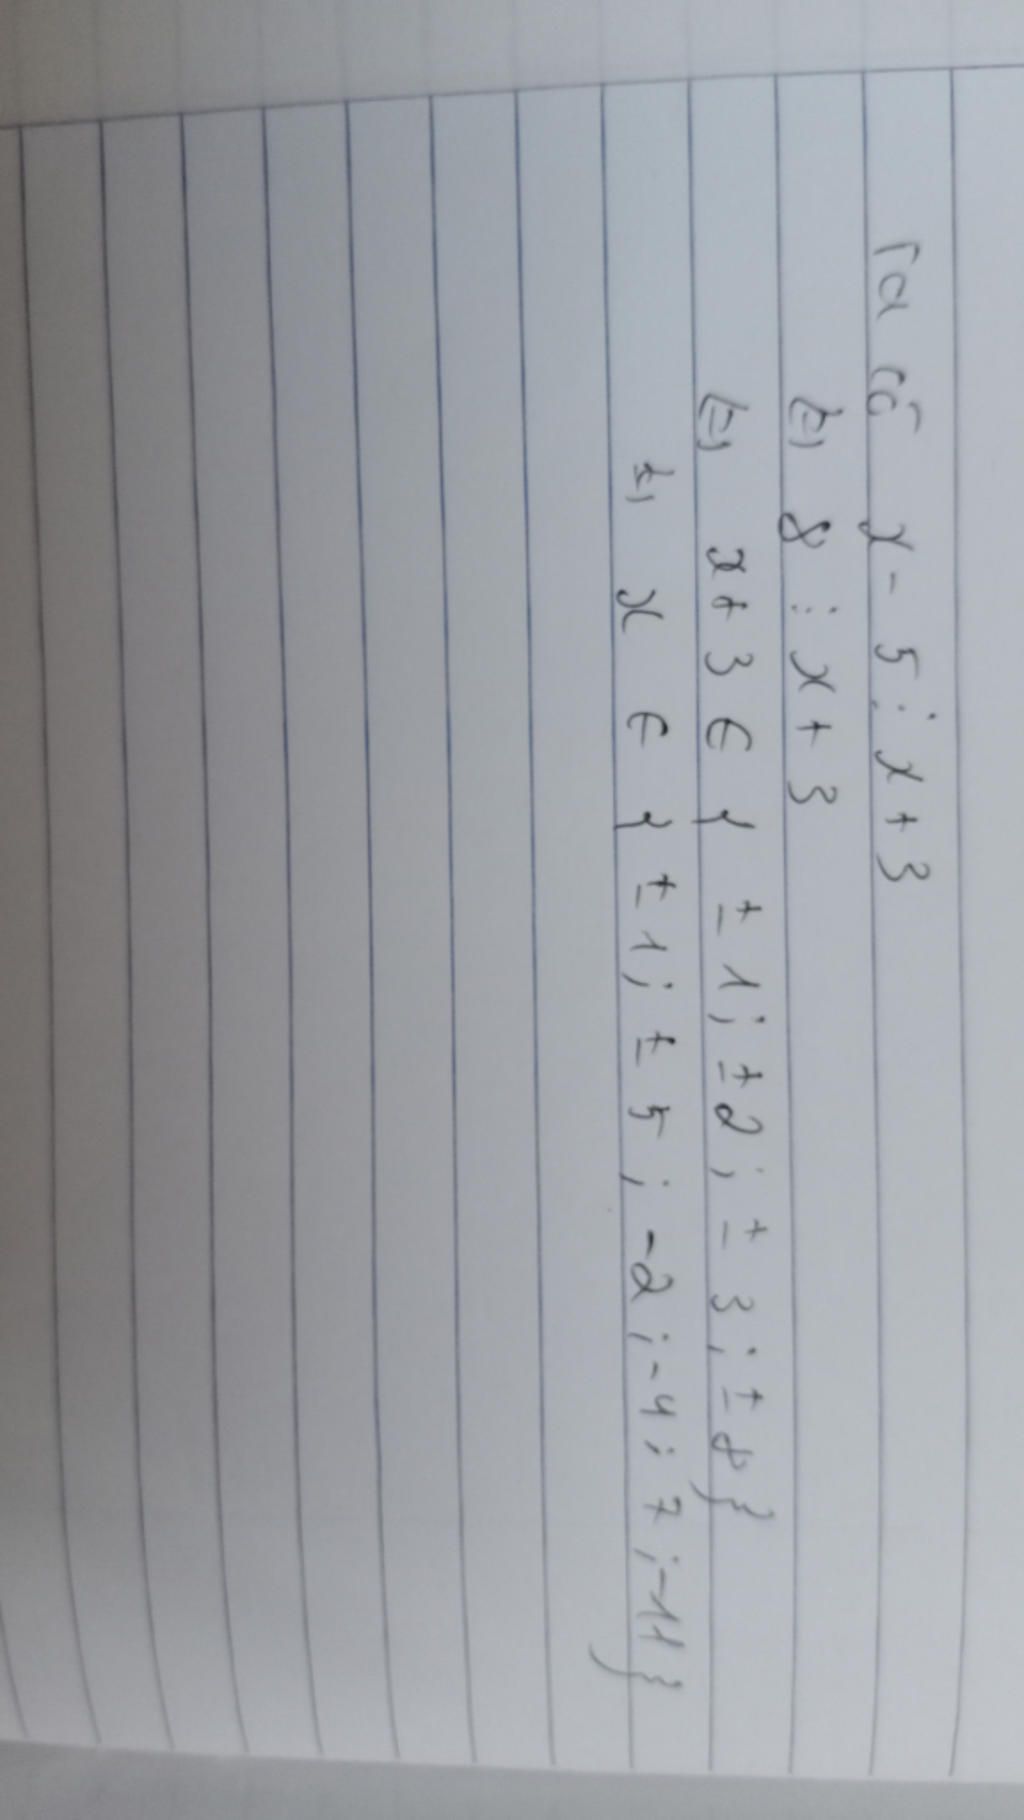 Ta có x - 5 ⋮ x + 3
⇔ 8 ⋮ x + 3
⇔ x + 3 ∈ { ± 1 ; ± 2 ; ± 3 ; ± 8 }
⇔ x ∈ { ± 1 ; ± 5 ; -2 ; -4 ; 7 ; -11 }